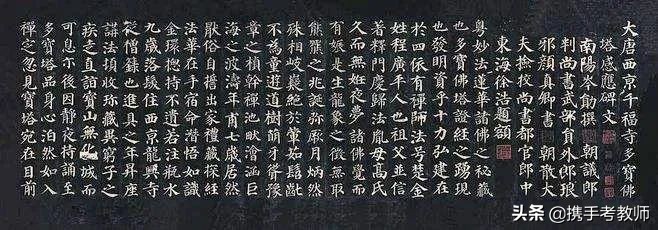 大唐西京千福寺多寶佛
塔感應碑文
南陽岑勛撰 朝議郎
判尚書武部員外郎琅
邪顏真卿書 朝散大
夫撿校尚書都官郎中
東海徐浩題額
粵妙法蓮華諸佛之秘藏
也多寶佛塔證經之踴現
也發明資乎十力弘建在
於四依有禪師法号楚金
姓程廣平人也祖父並信
著釋門慶歸法胤母高氏
久而無妊夜夢諸佛覺而
有娠是生龍象之徵無取
熊羆之兆誕弥厥月炳然
殊相岐嶷絕於葷茹髫齔
不為童遊道樹萌牙聳豫
章之楨幹禪池畎澮涵巨
海之波濤年甫七歲居然
猒俗自誓出家禮藏探經
法華在手宿命潛悟如識
金環惣持不遺若注瓶水
九歲落髮住西京龍興寺
從僧籙也進具之年昇座
講法頓收珍藏異窮子之
疾走直詣寶山無化城而
可息尒後因靜夜持誦至
多寶塔品身心泊然如入
禪定忽見寶塔宛在目前
头条 @携手考教师